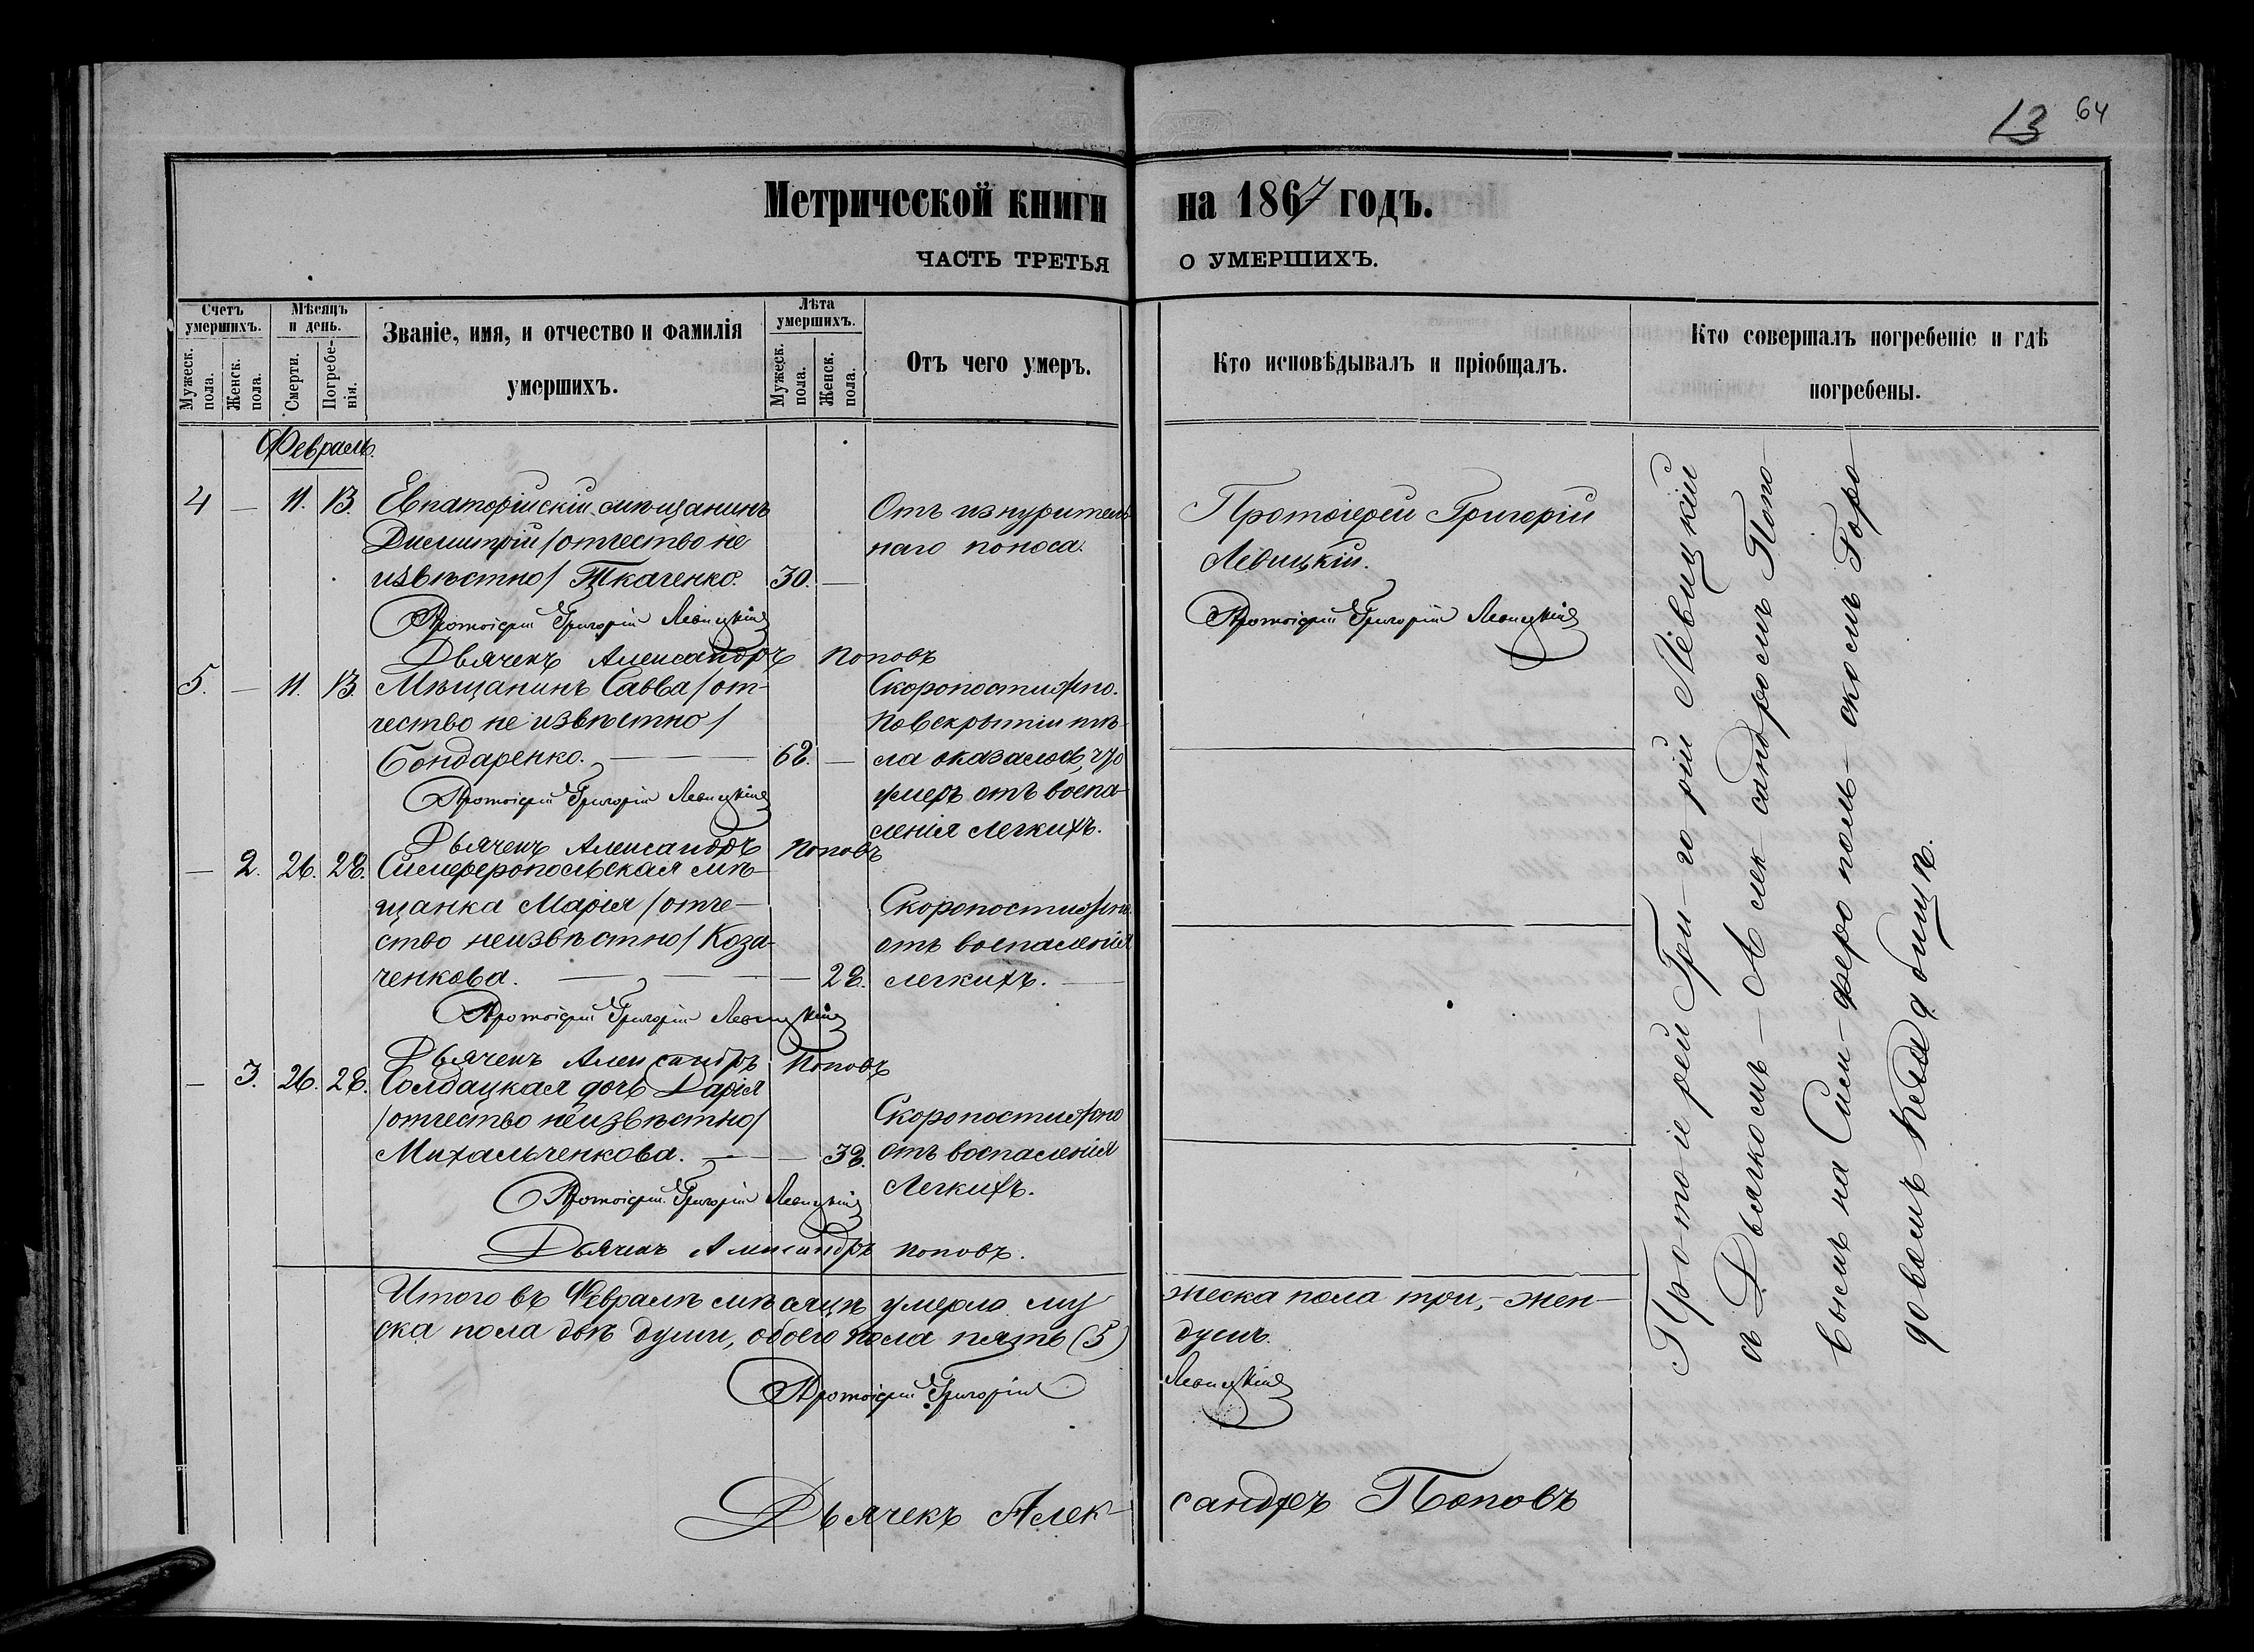 13 64
Метрической книги на 1867 годъ.
ЧАСТЬ ТРЕТЬЯ О УМЕРШИХЪ.
Счетъ умершихъ.
Мужеск. пола.
Женск. пола.
Мѣсяцъ и день.
Смерти.
Погребенія.
Званіе, имя, и отчество и фамилія
умершихъ.
Лѣта умершихъ.
Мужеск. пола.
Женск. пола.
Отъ чего умеръ.
Кто исповѣдывалъ и пріобщалъ.
Кто совершалъ погребеніе и гдѣ
погребены.
Февраль.
4 — 11. 13. Евпаторійскій мѣщанинъ
Димитрій /отчество не
извѣстно/ Ткаченко. 30. —
Отъ изнуритель
наго поноса.
Протоіерей Григорій
Левицкій.
Протоіерей Григорій Левицкій
Протоіерей Григорій Левицкій
Дьячекъ Александръ Поповъ
5. — 11. 13. Мѣщанинъ Савва /от-
чество не извѣстно/
Бондаренко. — 62. —
Скоропостижно.
По вскрытіи тѣ-
ла оказалось, что
умеръ отъ воспа-
ленія легкихъ.
Протоіерей Григорій Левицкій
Дьячекъ Александръ Поповъ
— 2. 26. 28. Симферопольская мѣ-
щанка Марія /отче-
ство неизвѣстно/ Коза-
ченкова. — — 28.
Скоропостижно
отъ воспаленія
легкихъ. —
Протоіерей Григорій Левицкій
Дьячекъ Александръ Поповъ
— 3. 26. 28. Солдацкая дочь Дарія
/отчество неизвѣстно/
Михальченкова. — — 38.
Скоропостижно
отъ воспаленія
Легкихъ.
Протоіерей Григорій Левицкій
Дьячекъ Александръ Поповъ.
Протоіерей Гри-горій Левицкій
съ Дьячкомъ — Александромъ Попо-
вымъ на Сим-феропольскомъ Горо
довомъ Кладбищѣ.
Итого въ Февралѣ мѣсяцѣ умерло му жеска пола три, — жен-
ска пола двѣ души, обоего пола пять (5) душъ.
Протоіерей Григорій Левицкій
Дьячекъ Алек- сандръ Поповъ